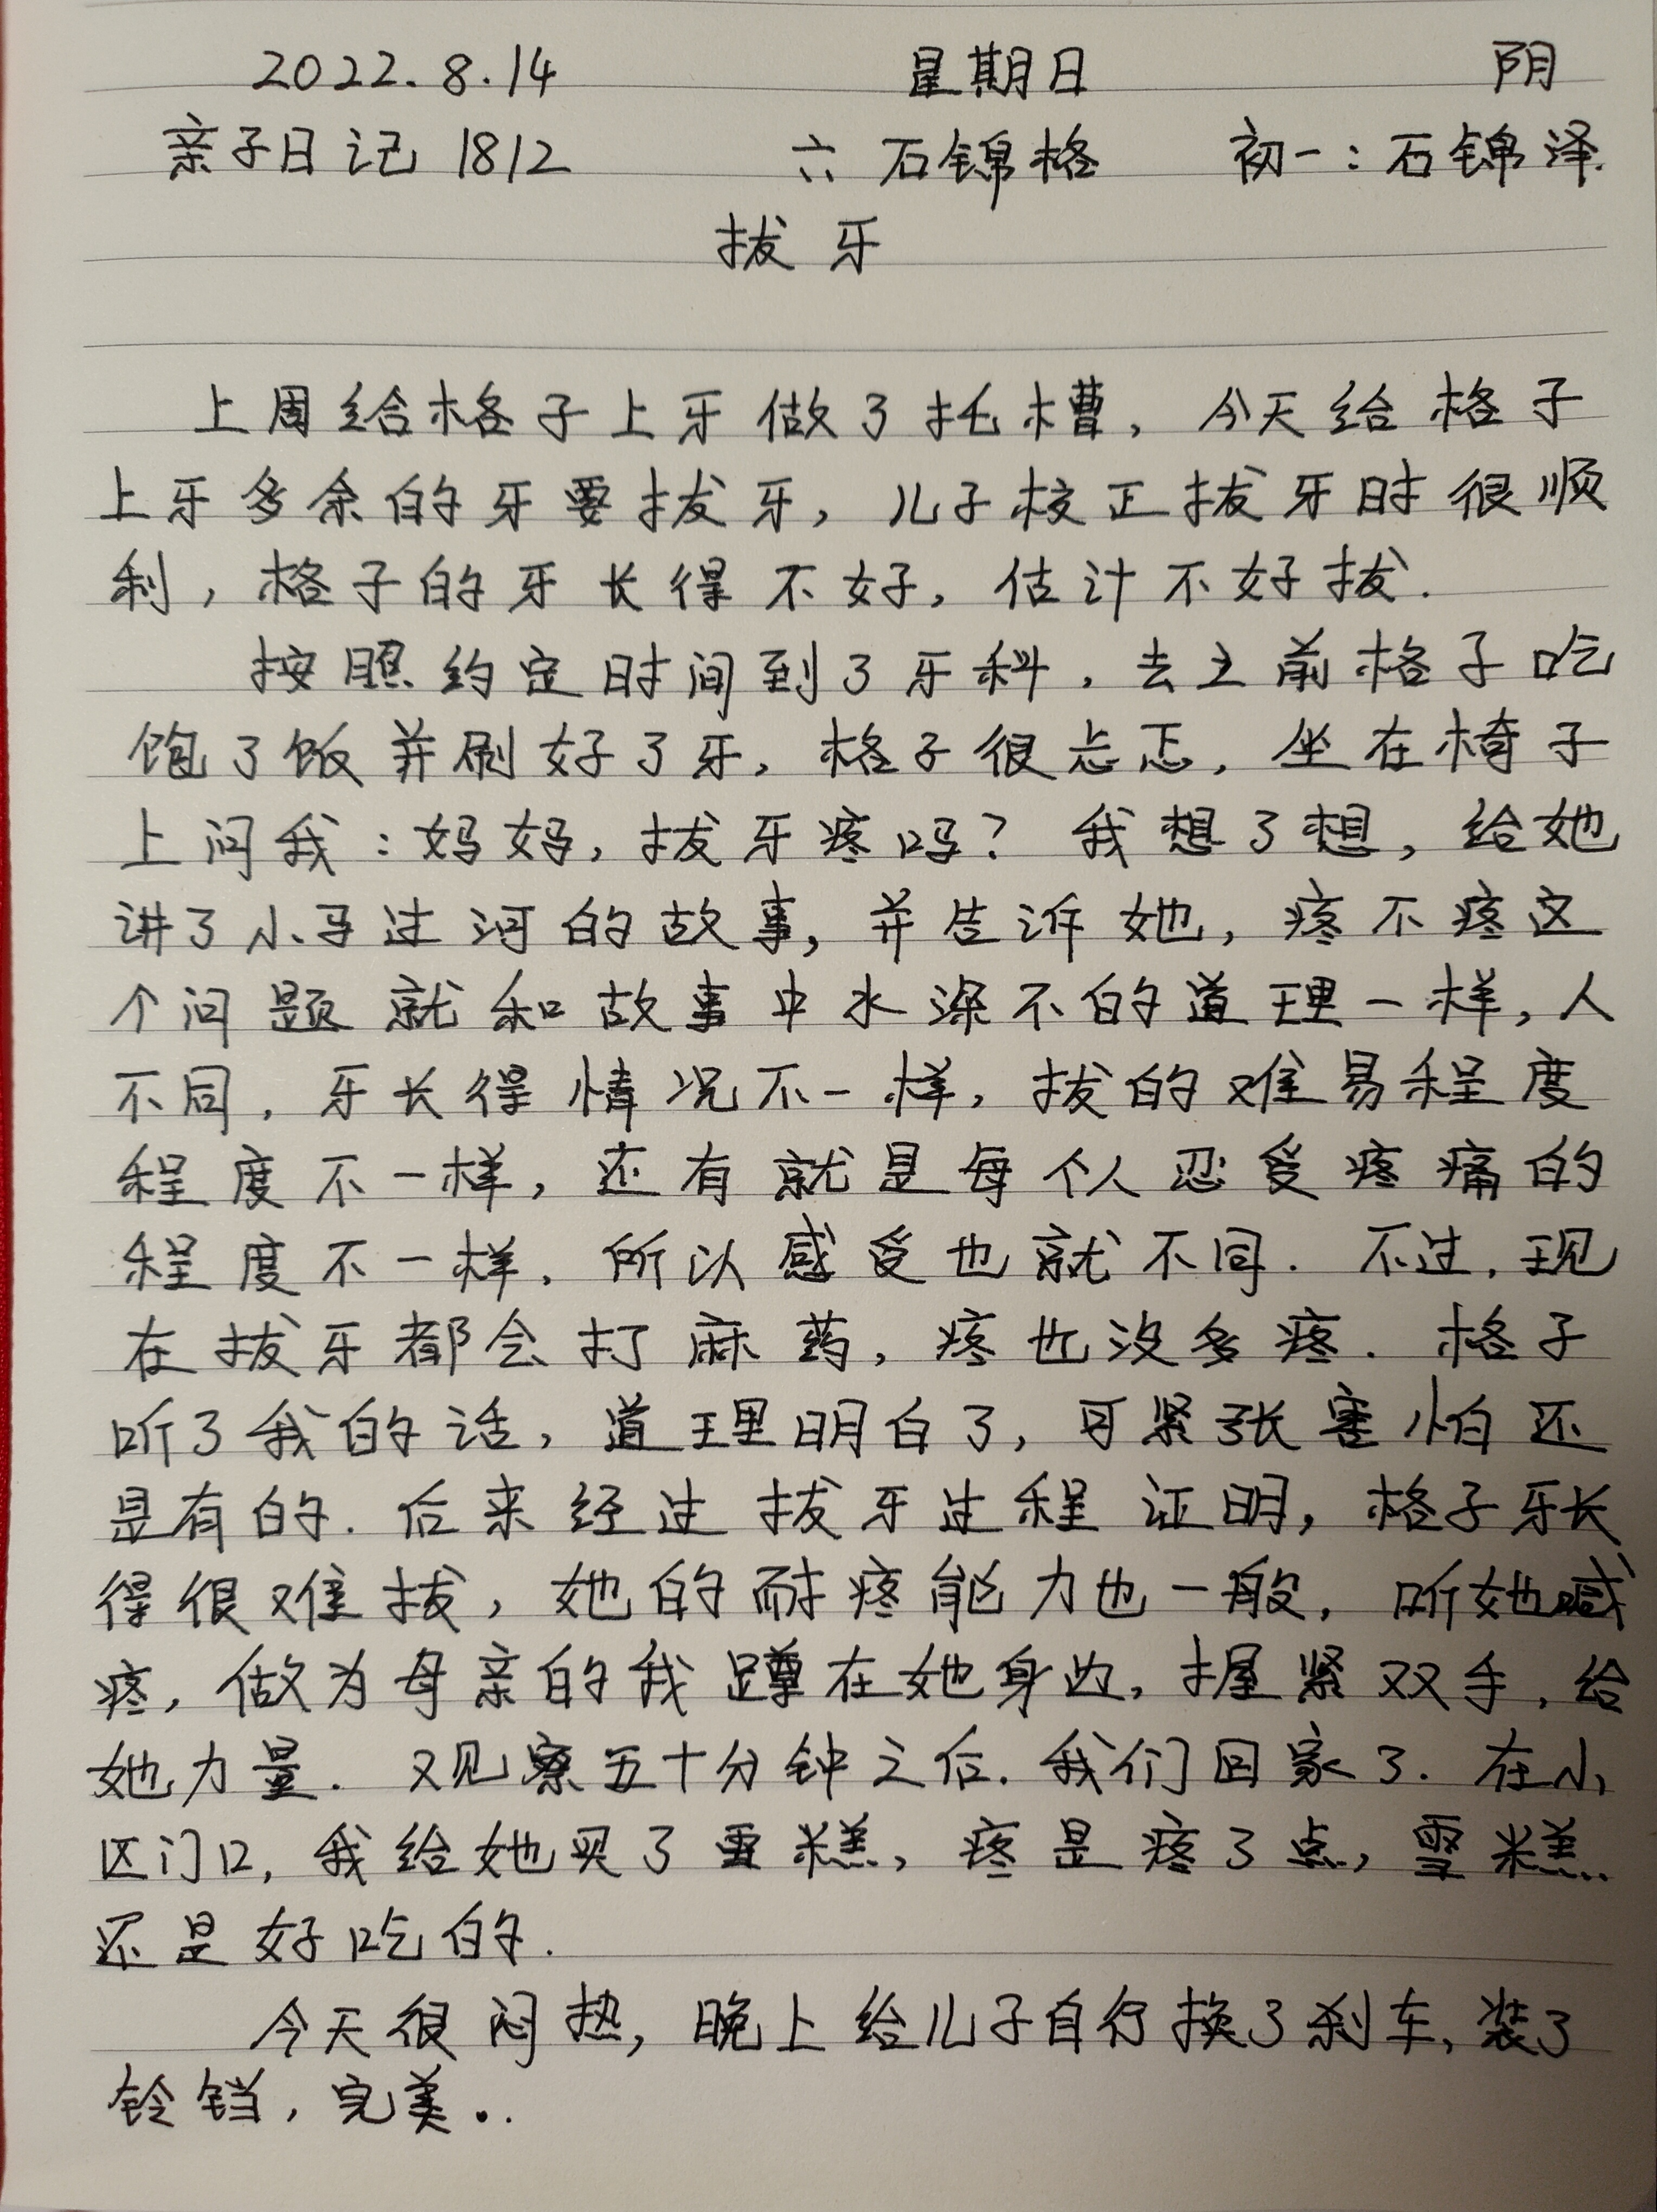 2022.8.14 星期日 阴
亲子日记 1812 六 石锦格 初一：石锦泽.
拔牙
上周给格子上牙做了托槽，今天给格子
上牙多余的牙要拔牙，儿子校正拔牙时很顺
利，格子的牙长得不好，估计不好拔.
按照约定时间到了牙科，去之前格子吃
饱了饭并刷好了牙，格子很忐忑，坐在椅子
上问我：妈妈，拔牙疼吗？我想了想，给她
讲了小马过河的故事，并告诉她，疼不疼这
个问题就和故事中水深不的道理一样，人
不同，牙长得情况不一样，拔的难易程度
程度不一样，还有就是每个人忍受疼痛的
程度不一样，所以感受也就不同.不过，现
在拔牙都会打麻药，疼也没多疼.格子
听了我的话，道理明白了，可紧张害怕还
是有的.后来经过拔牙过程证明，格子牙长
得很难拔，她的耐疼能力也一般，听她喊
疼，做为母亲的我蹲在她身边，握紧双手，给
她力量.又观察五十分钟之后.我们回家了.在小
区门口，我给她买了雪糕，疼是疼了点，雪糕
还是好吃的.
今天很闷热，晚上给儿子自行换了刹车，装了
铃铛，完美..